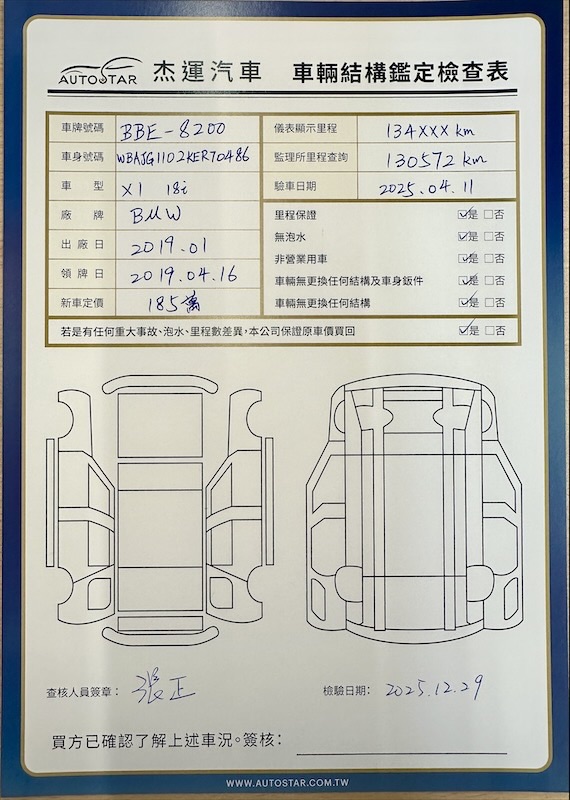 AUTOSTAR 杰運汽車 車輛結構鑑定檢查表
車牌號碼 BBE-8200
車身號碼 WBAJG1102KER70486
車型 X1 18i
廠牌 BMW
出廠日 2019.01
領牌日 2019.04.16
新車定價 185萬
儀表顯示里程 134XXX km
監理所里程查詢 130572 km
驗車日期 2025.04.11
里程保證 ☑是 □否
無泡水 ☑是 □否
非營業用車 ☑是 □否
車輛無更換任何結構及車身鈑件 ☑是 □否
車輛無更換任何結構 ☑是 □否
若是有任何重大事故、泡水、里程數差異,本公司保證原車價買回 ☑是 □否
查核人員簽章: 張正
檢驗日期: 2025.12.29
買方已確認了解上述車況。簽核:
WWW.AUTOSTAR.COM.TW